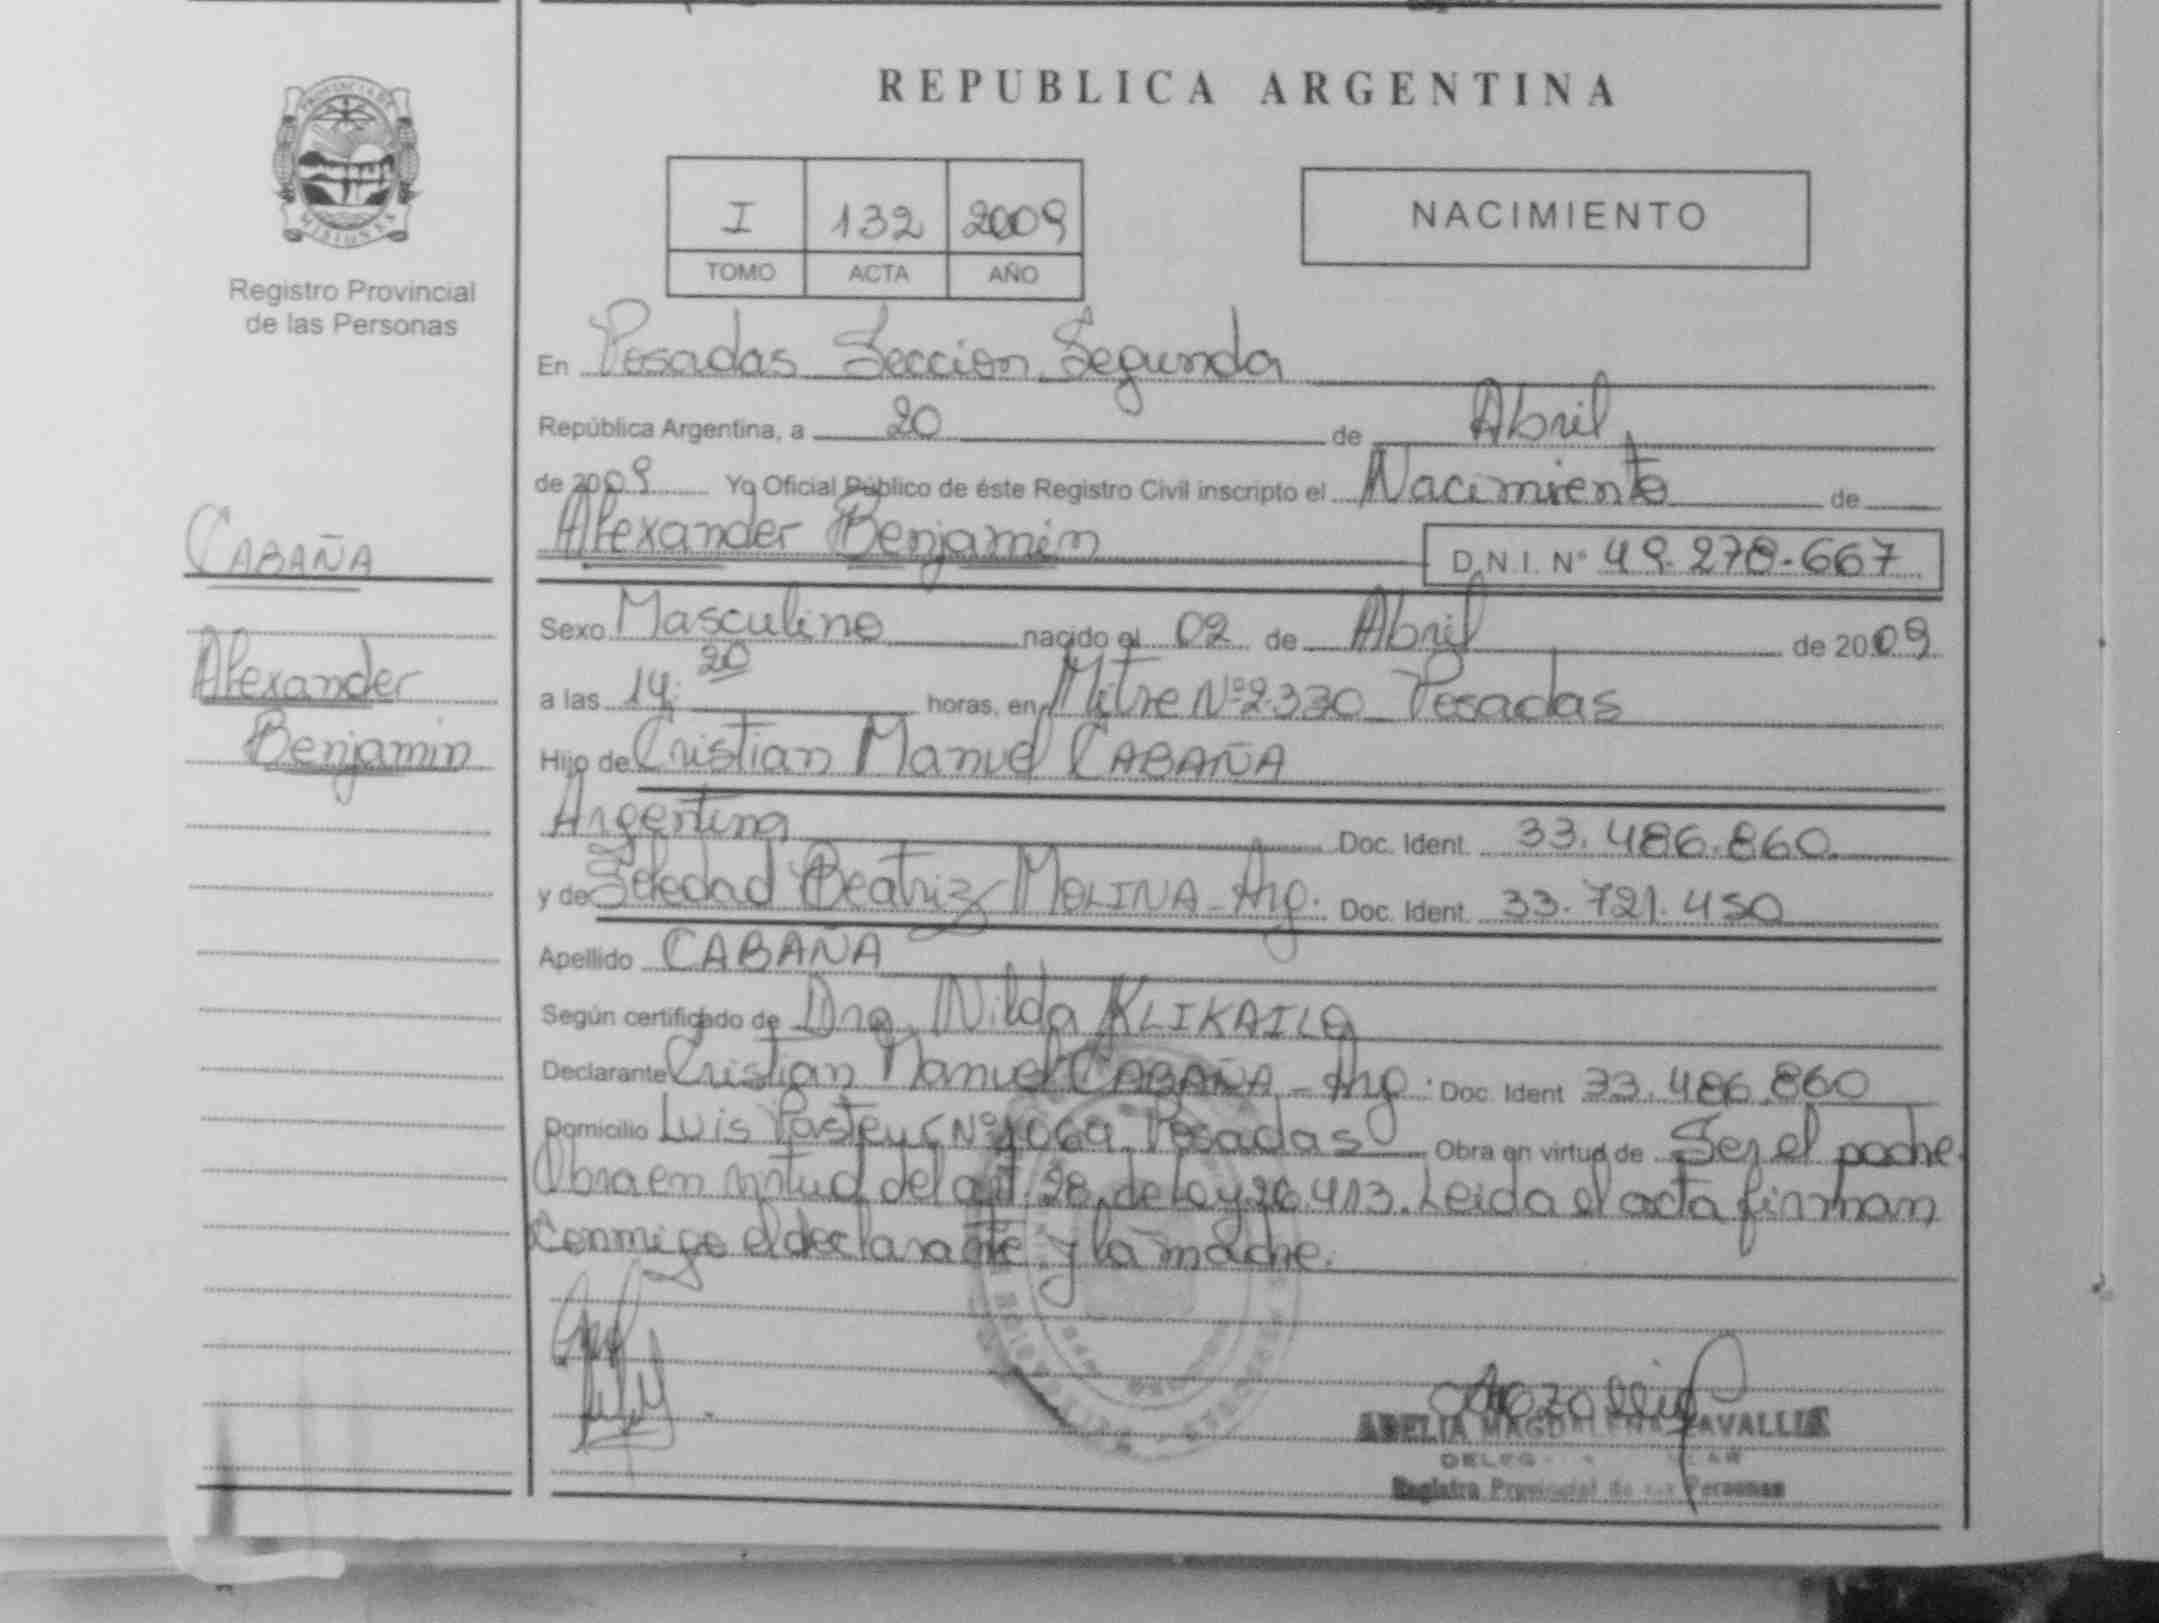 REPUBLICA ARGENTINA
PROVINCIA DE
MISIONES
Registro Provincial
de las Personas
I 132 2009
TOMO ACTA AÑO
NACIMIENTO
En Posadas Sección Segunda
República Argentina, a 20 de Abril
de 2009 Yo Oficial Público de éste Registro Civil inscripto el Nacimiento de
Alexander Benjamín D.N.I. Nº 49.278.667
CABAÑA
Alexander
Benjamín
Sexo Masculino nacido el 02 de Abril de 2009
a las 14:20 horas, en Mitre Nº2.330 Posadas
Hijo de Cristian Manuel CABAÑA
Argentina Doc. Ident. 33.486.860
y de Soledad Beatriz MOLINA - Arg. Doc. Ident. 33.721.450
Apellido CABAÑA
Según certificado de Dra. Nilda KLIKAILO
Declarante Cristian Manuel CABAÑA - Arg. Doc. Ident 33.486.860
Domicilio Luis Pasteur Nº 1069 Posadas Obra en virtud de Ser el padre.
Obra en virtud del art. 28 de Ley 26.413. Leida el acta firman
conmigo el declarante y la madre.
ADELIA MAGDALENA ZAVALLIS
Registro Provincial de las Personas